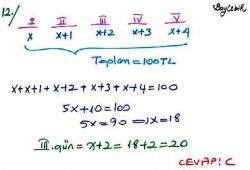 12./
BayÇebik
I II III IV V
x x+1 x+2 x+3 x+4
Toplam=100TL
x+x+1+x+2+x+3+x+4=100
5x+10=100
5x=90 ⇒x=18
III.gün=x+2=18+2=20
CEVAP: C